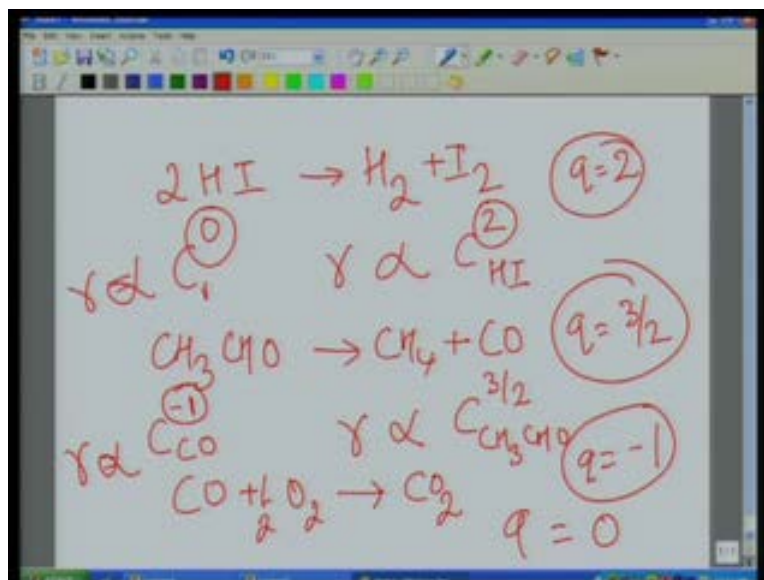 2HI → H₂ + I₂ q=2
r α C₁⁰ r α C_HI²
CH₃CHO → CH₄ + CO q=3/2
r α C_CO⁻¹ r α C_CH₃CHO^3/2 q=-1
CO + ½O₂ → CO₂
q = 0